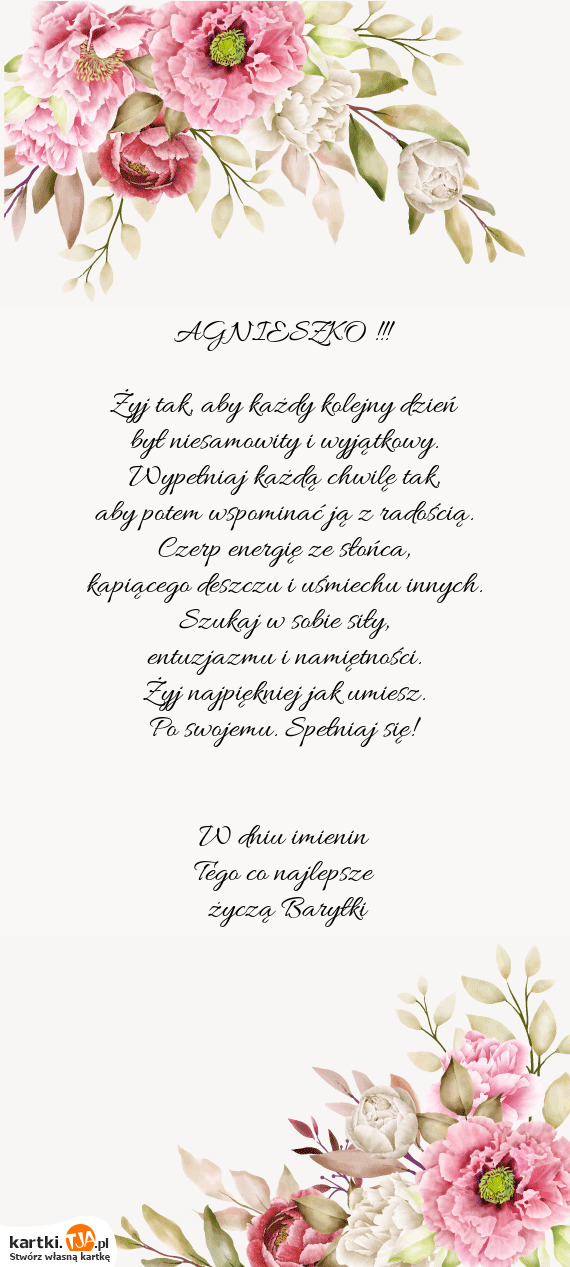 AGNIESZKO !!!
Żyj tak, aby każdy kolejny dzień
był niesamowity i wyjątkowy.
Wypełniaj każdą chwilę tak,
aby potem wspominać ją z radością.
Czerp energię ze słońca,
kapiącego deszczu i uśmiechu innych.
Szukaj w sobie siły,
entuzjazmu i namiętności.
Żyj najpiękniej jak umiesz.
Po swojemu. Spełniaj się!
W dniu imienin
Tego co najlepsze
życzą Baryłki
kartki.TJA.pl
Stwórz własną kartkę